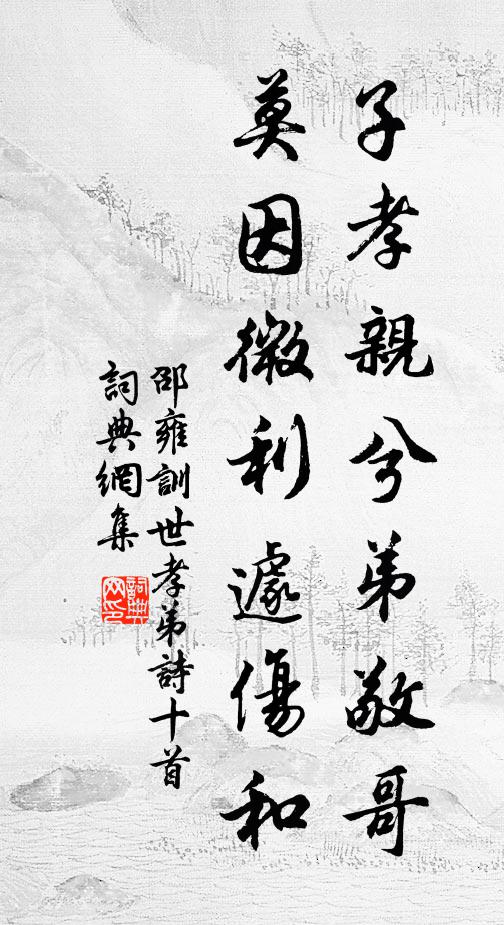 子孝親兮弟敬哥
莫因微利遽傷和
邵雍訓世孝弟詩十首
詞典網集
詞典網印